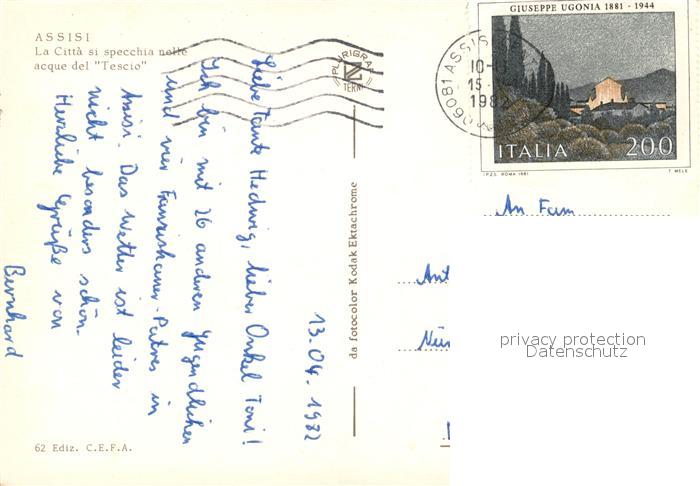 ASSISI
La Città si specchia nelle
acque del "Tescio"
13.04.1982
Liebe Tante Hedwig, lieber Onkel Toni!
Ich bin mit 26 anderen Jugendlichen
und vier Franziskaner-Patres in
Assisi. Das Wetter ist leider
nicht besonders schön.
Herzliche Grüße von
Bernhard
62 Ediz. C.E.F.A.
da fotocolor Kodak Ektachrome
PLURIGRAF
TERNI
GIUSEPPE UGONIA 1881 - 1944
ITALIA 200
I.P.Z.S. ROMA 1981 T. MELE
06081 ASSISI
10-
15-
1982
An Fam
privacy protection
Datenschutz